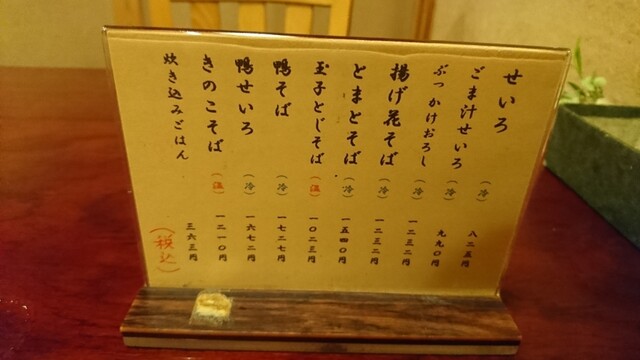 せいろ (冷) 八二五円
ごま汁せいろ (冷) 九九0円
ぶっかけおろし (冷) 一二三二円
揚げ花そば (冷) 一二三二円
とまとそば (冷) 一五四0円
玉子とじそば (温) 一0二三円
鴨そば (冷) 一七二七円
鴨せいろ (冷) 一六七二円
きのこそば (温) 一二一0円
炊き込みごはん 三六三円
(税込)